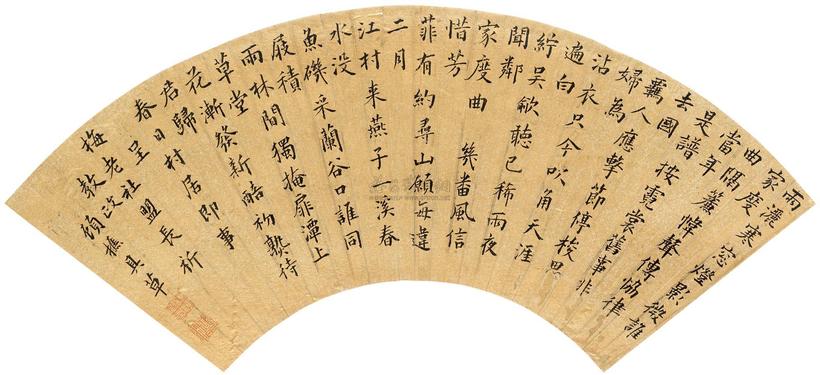 雨灑寒窗燈影微誰
家度
曲隔簾幃聲傳協律
當年
是譜按霓裳舊事非
去國
覊人應擊節停梭思
婦為
沾衣只今吹角天涯
遍白
紵吳歈聽已稀雨夜
聞鄰
家度曲 幾番風信
惜芳
菲有約尋山願每違
二月
江村来燕子溪春
水没
魚磯采蘭谷口誰同
屐積
雨林間獨掩扉潭上
草堂
花漸發新醅初熟待
君歸
春日村居即事
呈
梅老社盟長祈
教政 顧樵具草